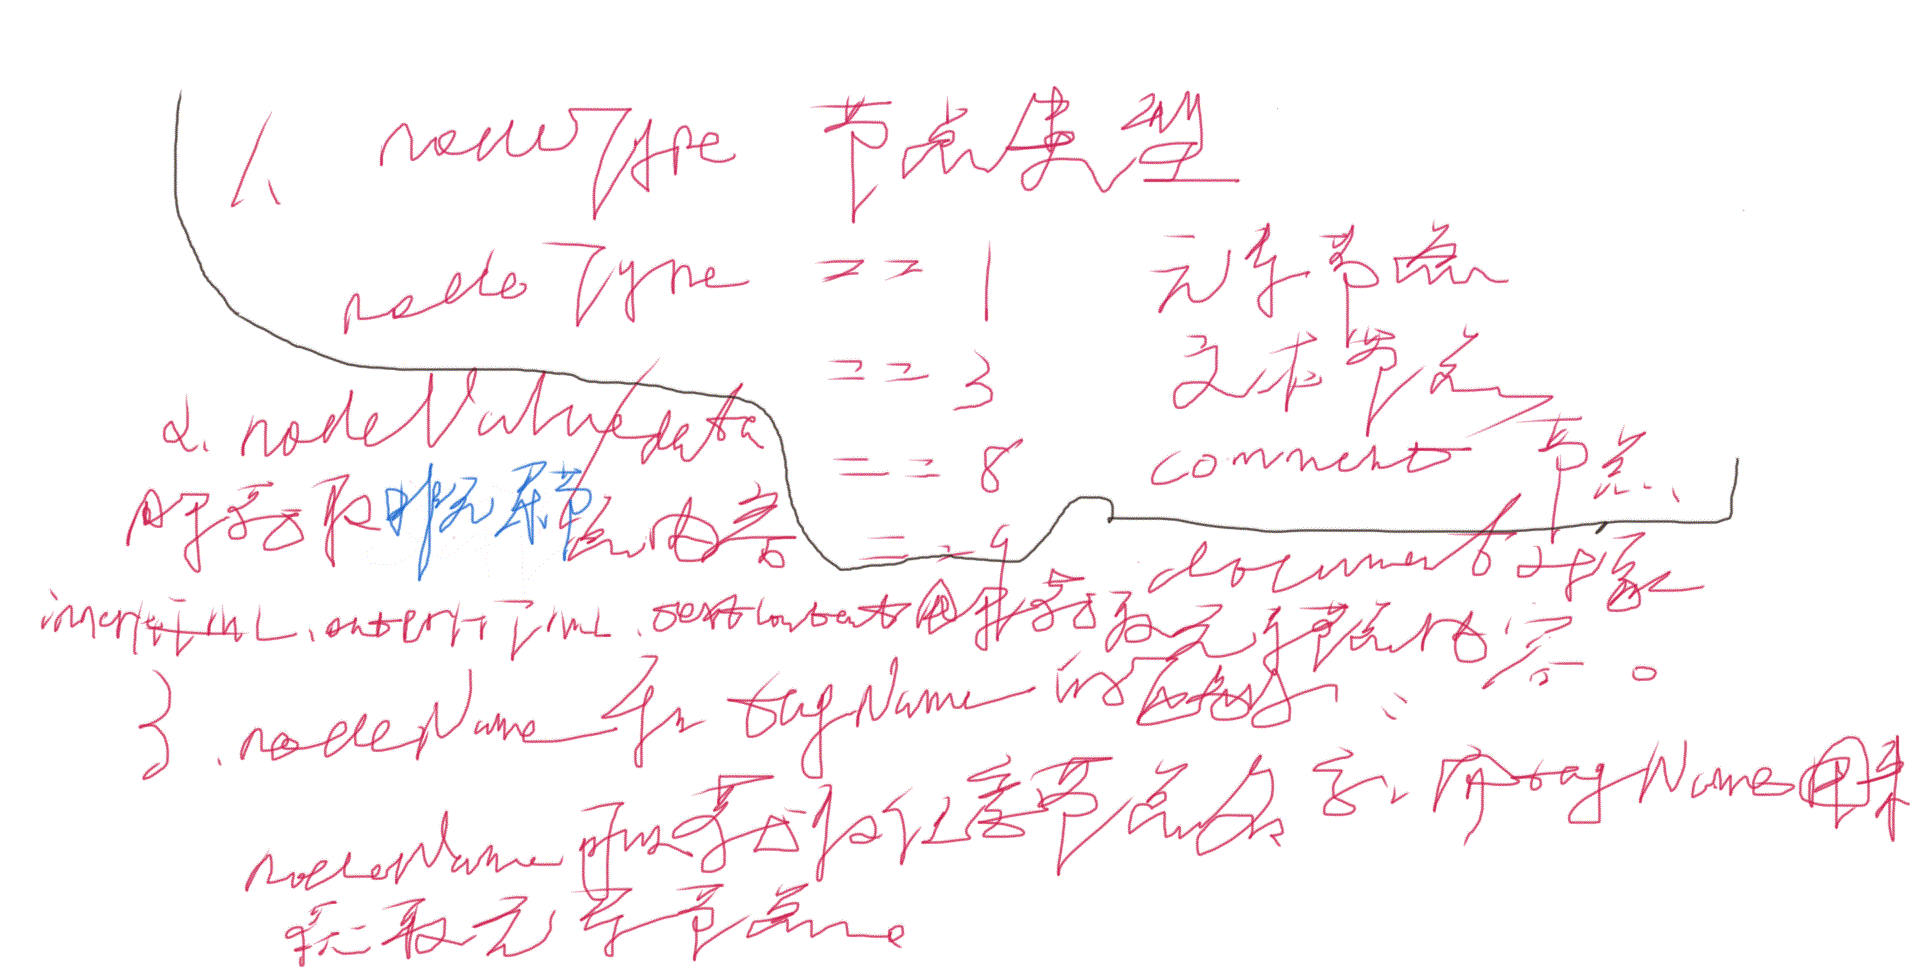 1、nodeType 节点类型
nodeType == 1 元素节点
== 3 文本节点
== 8 comment 节点、
== 9 document 对象
2. nodeValue/data
用于获取非元素节点内容
innerHTML、outerHTML、textContent用来获取元素节点内容。
3、nodeName 和 tagName 的区别：
nodeName 可以获取任意节点名字，而tagName用来
获取元素节点。